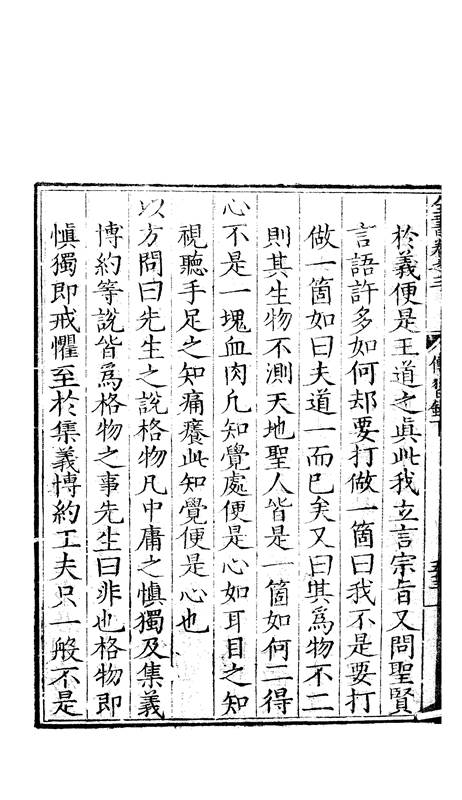 全書卷之三 傳習錄下 五十三
於義便是王道之真此我立言宗旨又問聖賢
言語許多如何却要打做一箇曰我不是要打
做一箇如曰夫道一而已矣又曰其爲物不二
則其生物不測天地聖人皆是一箇如何二得
心不是一塊血肉凡知覺處便是心如耳目之知
視聽手足之知痛癢此知覺便是心也
以方問曰先生之說格物凡中庸之慎獨及集義
博約等說皆爲格物之事先生曰非也格物即
慎獨即戒懼至於集義博約工夫只一般不是